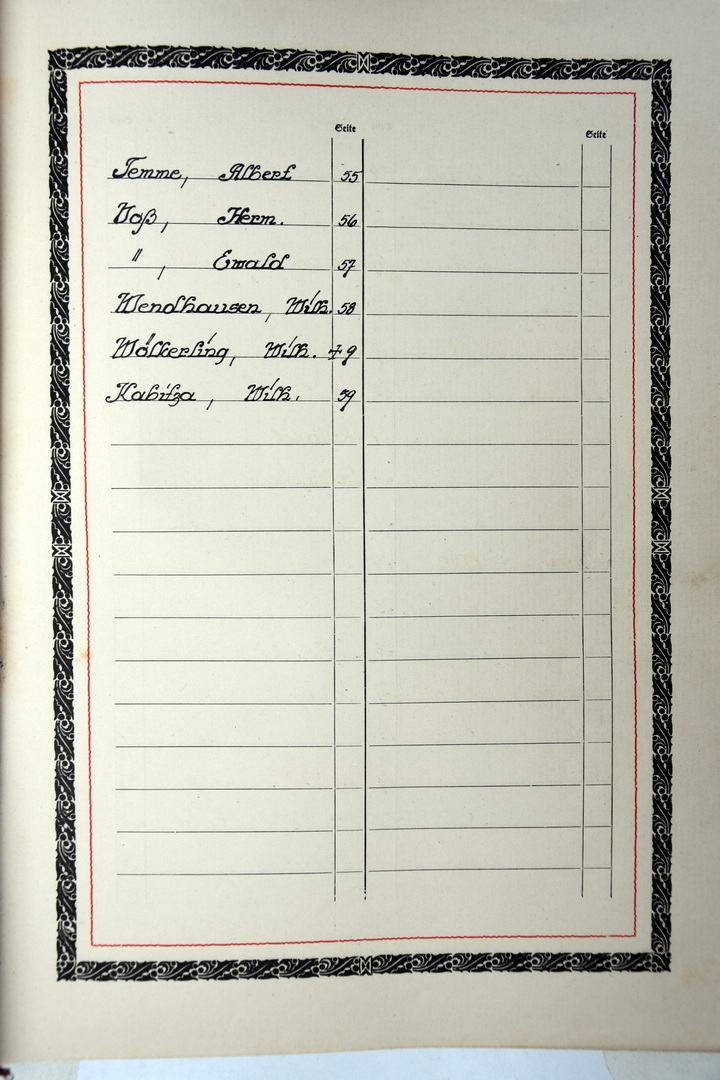 Seite
Seite
Temme, Albert 55
Voß, Herm. 56
" , Ewald 57
Wendhausen, Wilh. 58
Wölkerling, Wilh. 79
Kabitza, Wilh. 59